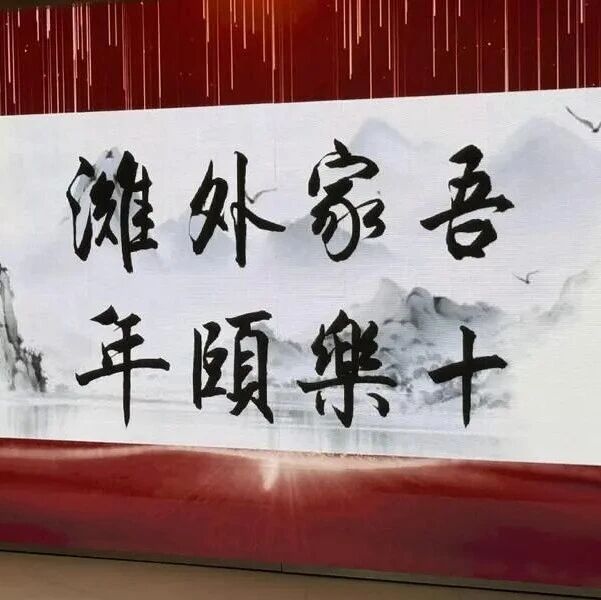 吾家外濰
十樂頤年